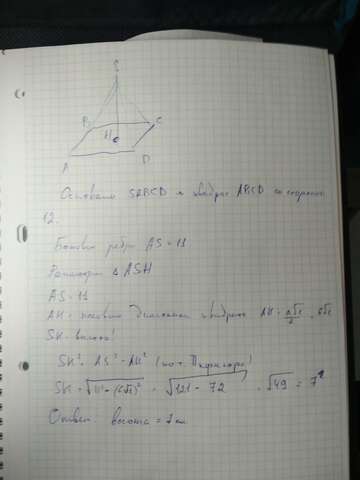 S
B C
H
A D
Основание SABCD – квадрат ABCD со стороной
12.
Боковое ребро AS = 11
Рассмотрим Δ ASH
AS = 11
AH - половина диагонали квадрата AH = a√2/2 = 6√2
SH - высота!
SH² = AS² - AH² (по т. Пифагора)
SH = √11² - (6√2)² = √121 - 72 = √49 = 7
Ответ: высота = 7 см